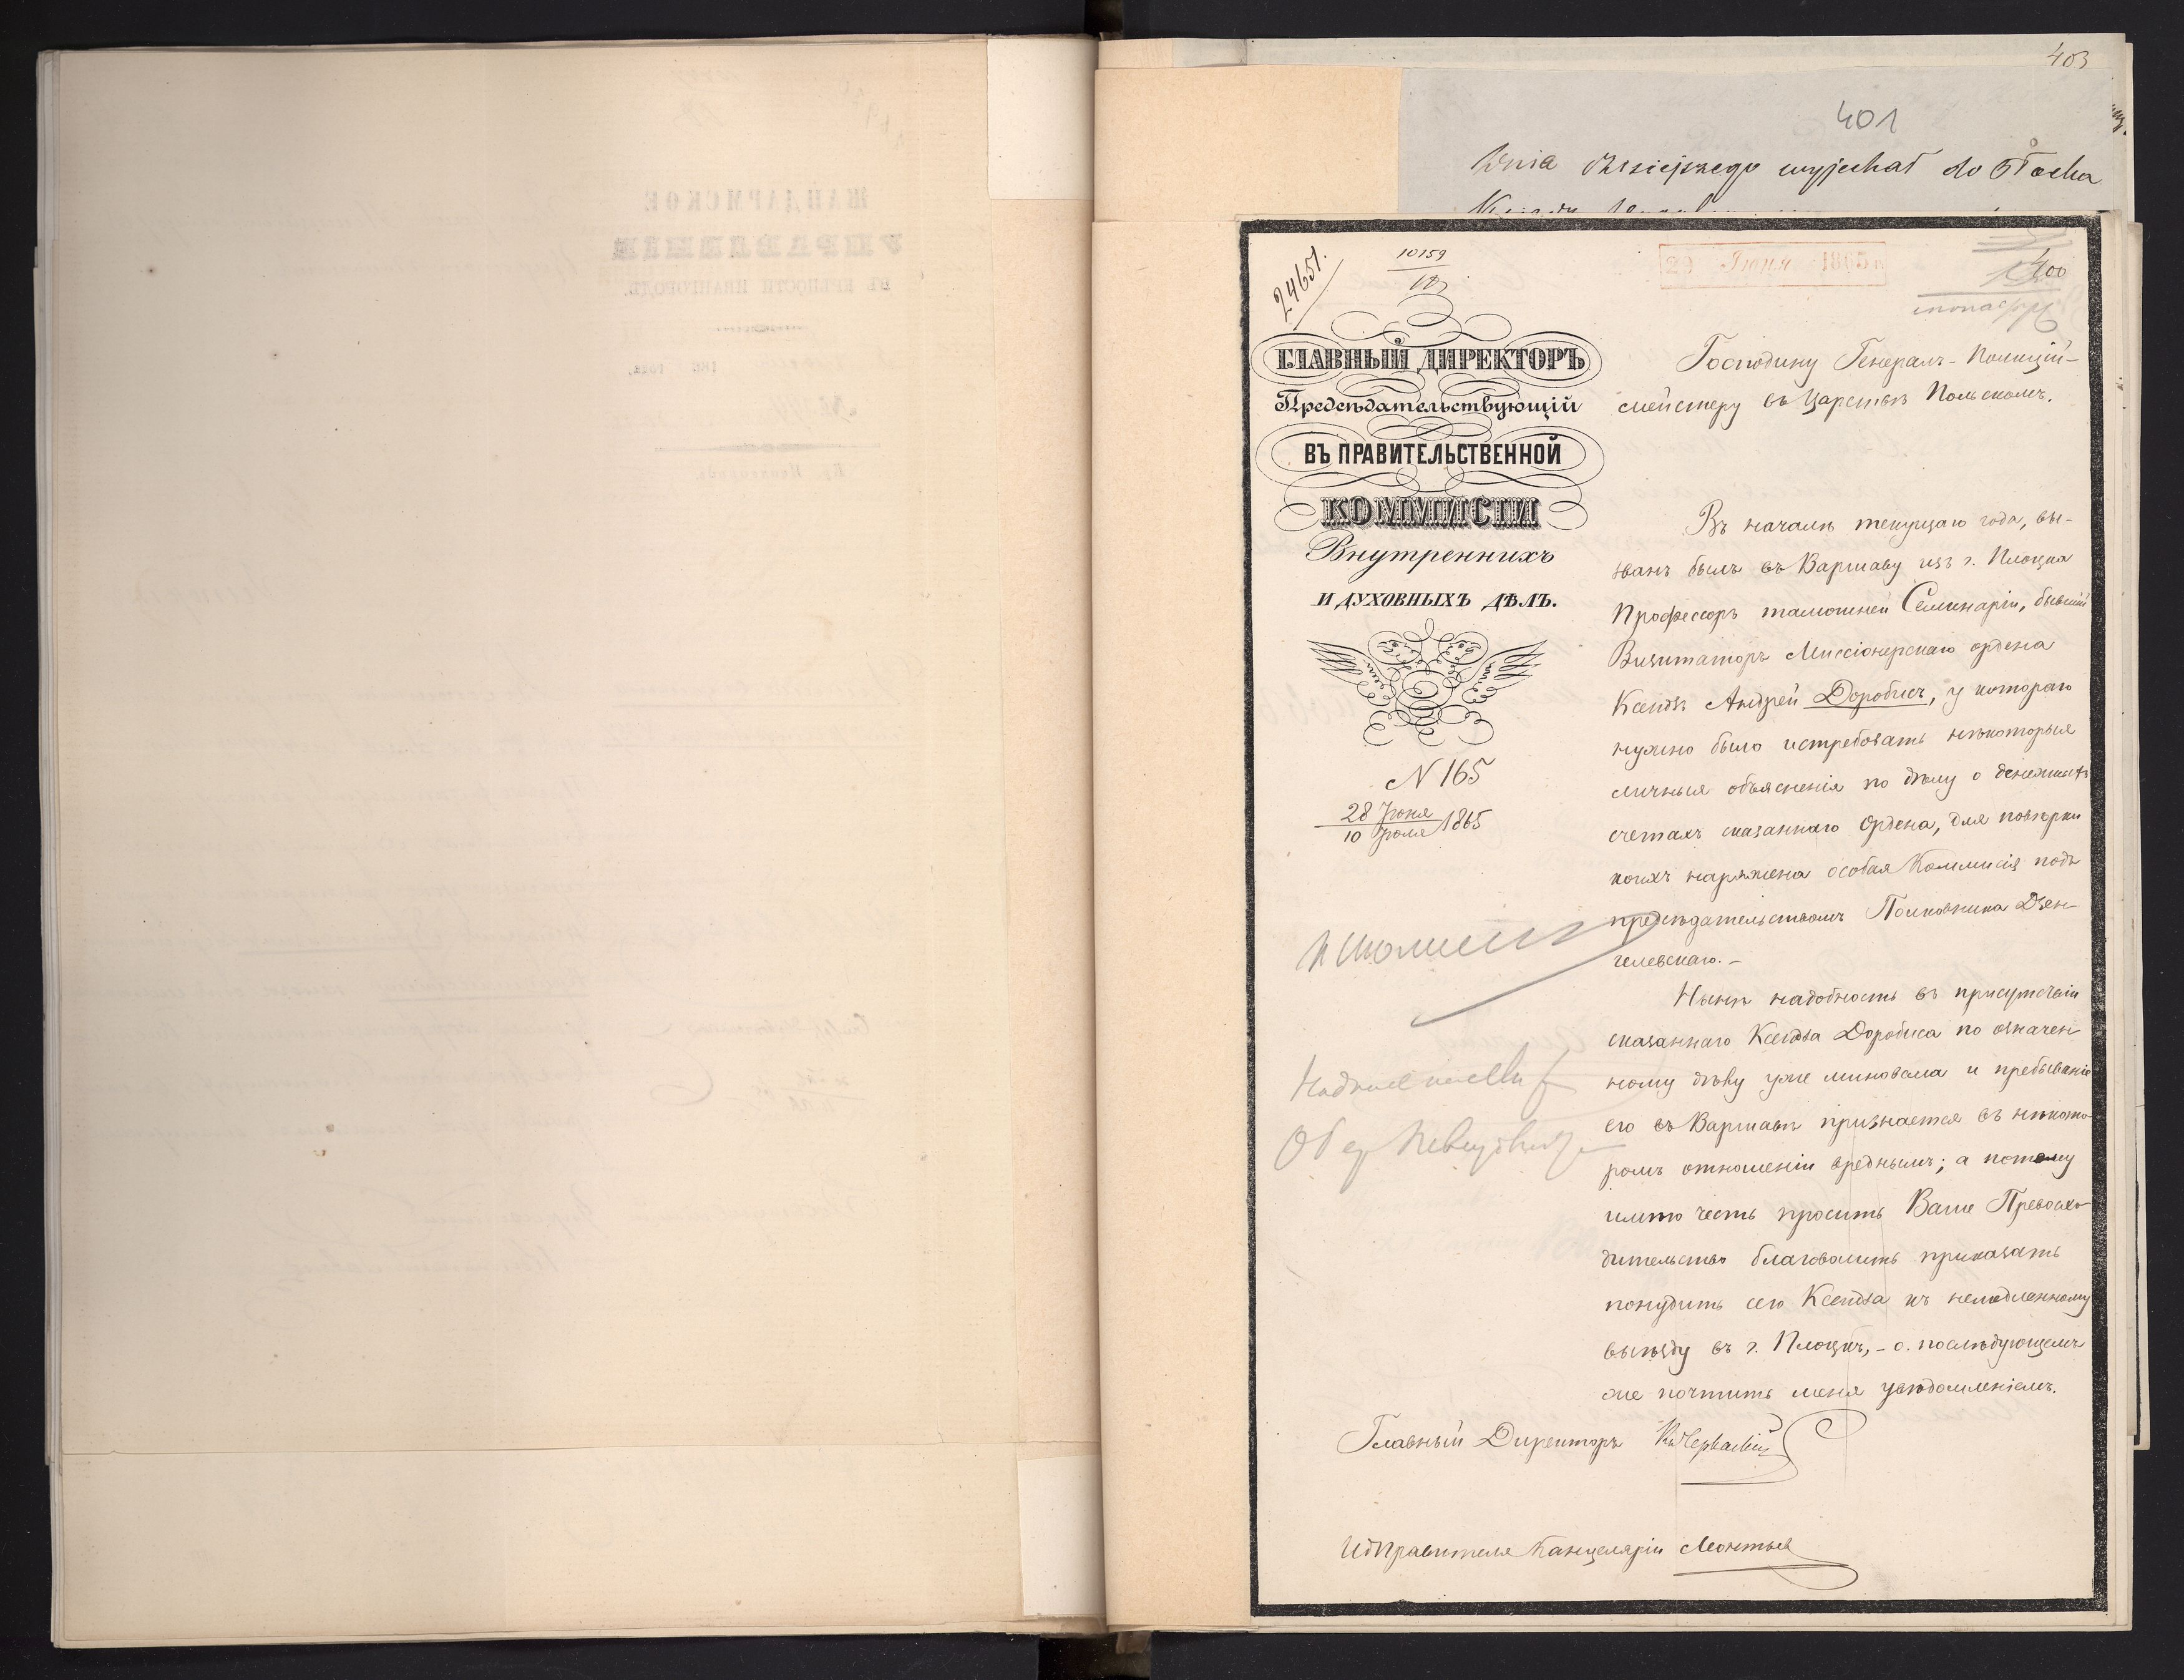 403
401
Dnia dzisiejszego wyjechał do Płocka
24651.
10159
29 Іюня 1865
400
ГЛАВНЫЙ ДИРЕКТОРЪ
Предсѣдательствующій
ВЪ ПРАВИТЕЛЬСТВЕННОЙ
КОММИСІИ
Внутреннихъ
И ДУХОВНЫХЪ ДѢЛЪ.
N 165
28 Іюня
10 Іюля 1865
Господину Генералъ-Полицій-
мейстеру въ Царствѣ Польскомъ.
Въ началѣ текущаго года, вы-
званъ былъ въ Варшаву изъ г. Плоцка
Профессоръ тамошней Семинаріи, бывшій
Визитаторъ Миссіонерскаго ордена
Ксендзъ Андрей Доробисъ, у котораго
нужно было истребовать нѣкоторыя
личныя объясненія по дѣлу о денежныхъ
счетахъ сказаннаго Ордена, для повѣрки
коихъ наряжена особая Коммисія подъ
предсѣдательствомъ Полковника Дзен-
гелевскаго.-
Нынѣ надобность въ присутствіи
сказаннаго Ксендза Доробиса по означен
ному дѣлу уже миновала и пребываніе
его въ Варшавѣ признается въ нѣкото-
ромъ отношеніи вреднымъ; а потому
имѣю честь просить Ваше Превосхо-
дительство благоволить приказать
понудить сего Ксендза къ немедленному
выѣзду въ г. Плоцкъ,- о послѣдующемъ
же почтить меня увѣдомленіемъ.
Главный Директоръ
Правителя Канцеляріи Леонтьев
ЖАНДАРМСКОЕ
УПРАВЛЕНІЕ
ВЪ КРѢПОСТИ ИВАНГОРОДѢ.